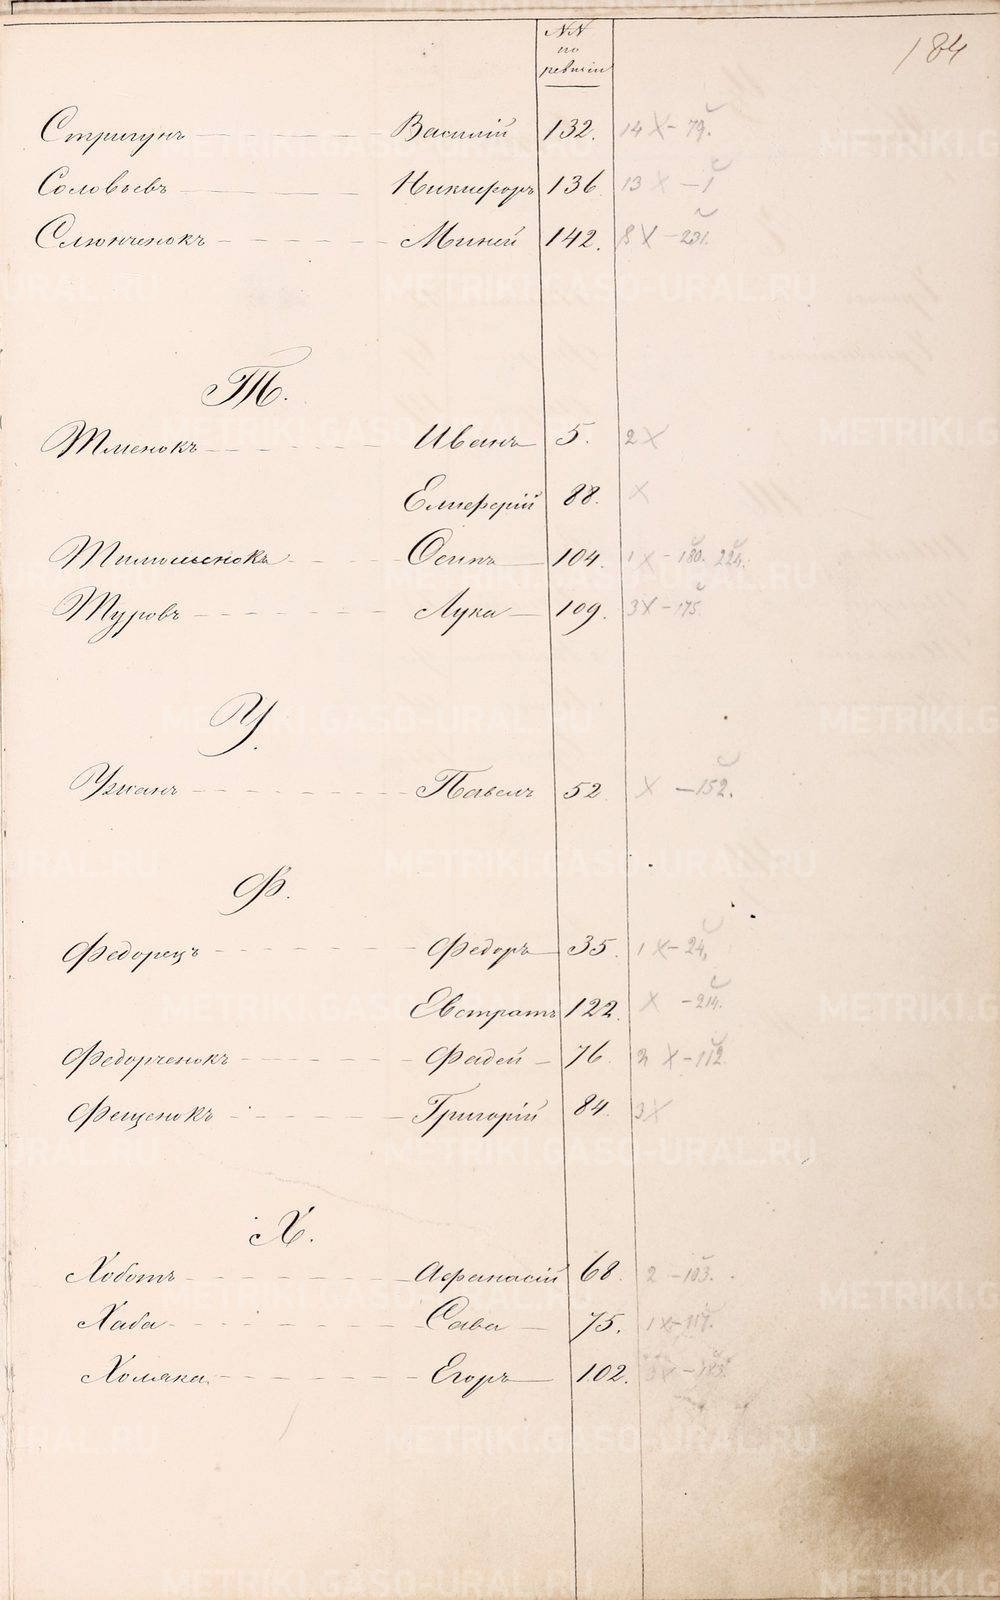 NN
по
ревизіи
184
Стригунъ Василій 132. 14 X - 79.
Соловьевъ Никифоръ 136 13 X - 1
Слюнченокъ Миней 142. X - 231.
Т.
Тменокъ Иванъ 5. 2 X
Елиферій 88. X
Осипъ 104. 1 X - 180. 224.
Туровъ Лука 109. 3 X - 175.
У.
Ужанъ Павелъ 52 X - 152.
Ф.
Федорецъ Федоръ 35. 1 X - 24,
Евстратъ 122. X - 214.
Федорченокъ Фадей 76. 2 X - 112
Фещенокъ Григорій 84. 3 X
Х.
Хоботъ Афанасій 68. 2 - 103.
Хаба Сава 75. 1 X - 117.
Хомяка Егоръ 102. X
METRIKI.GASO-URAL.RU